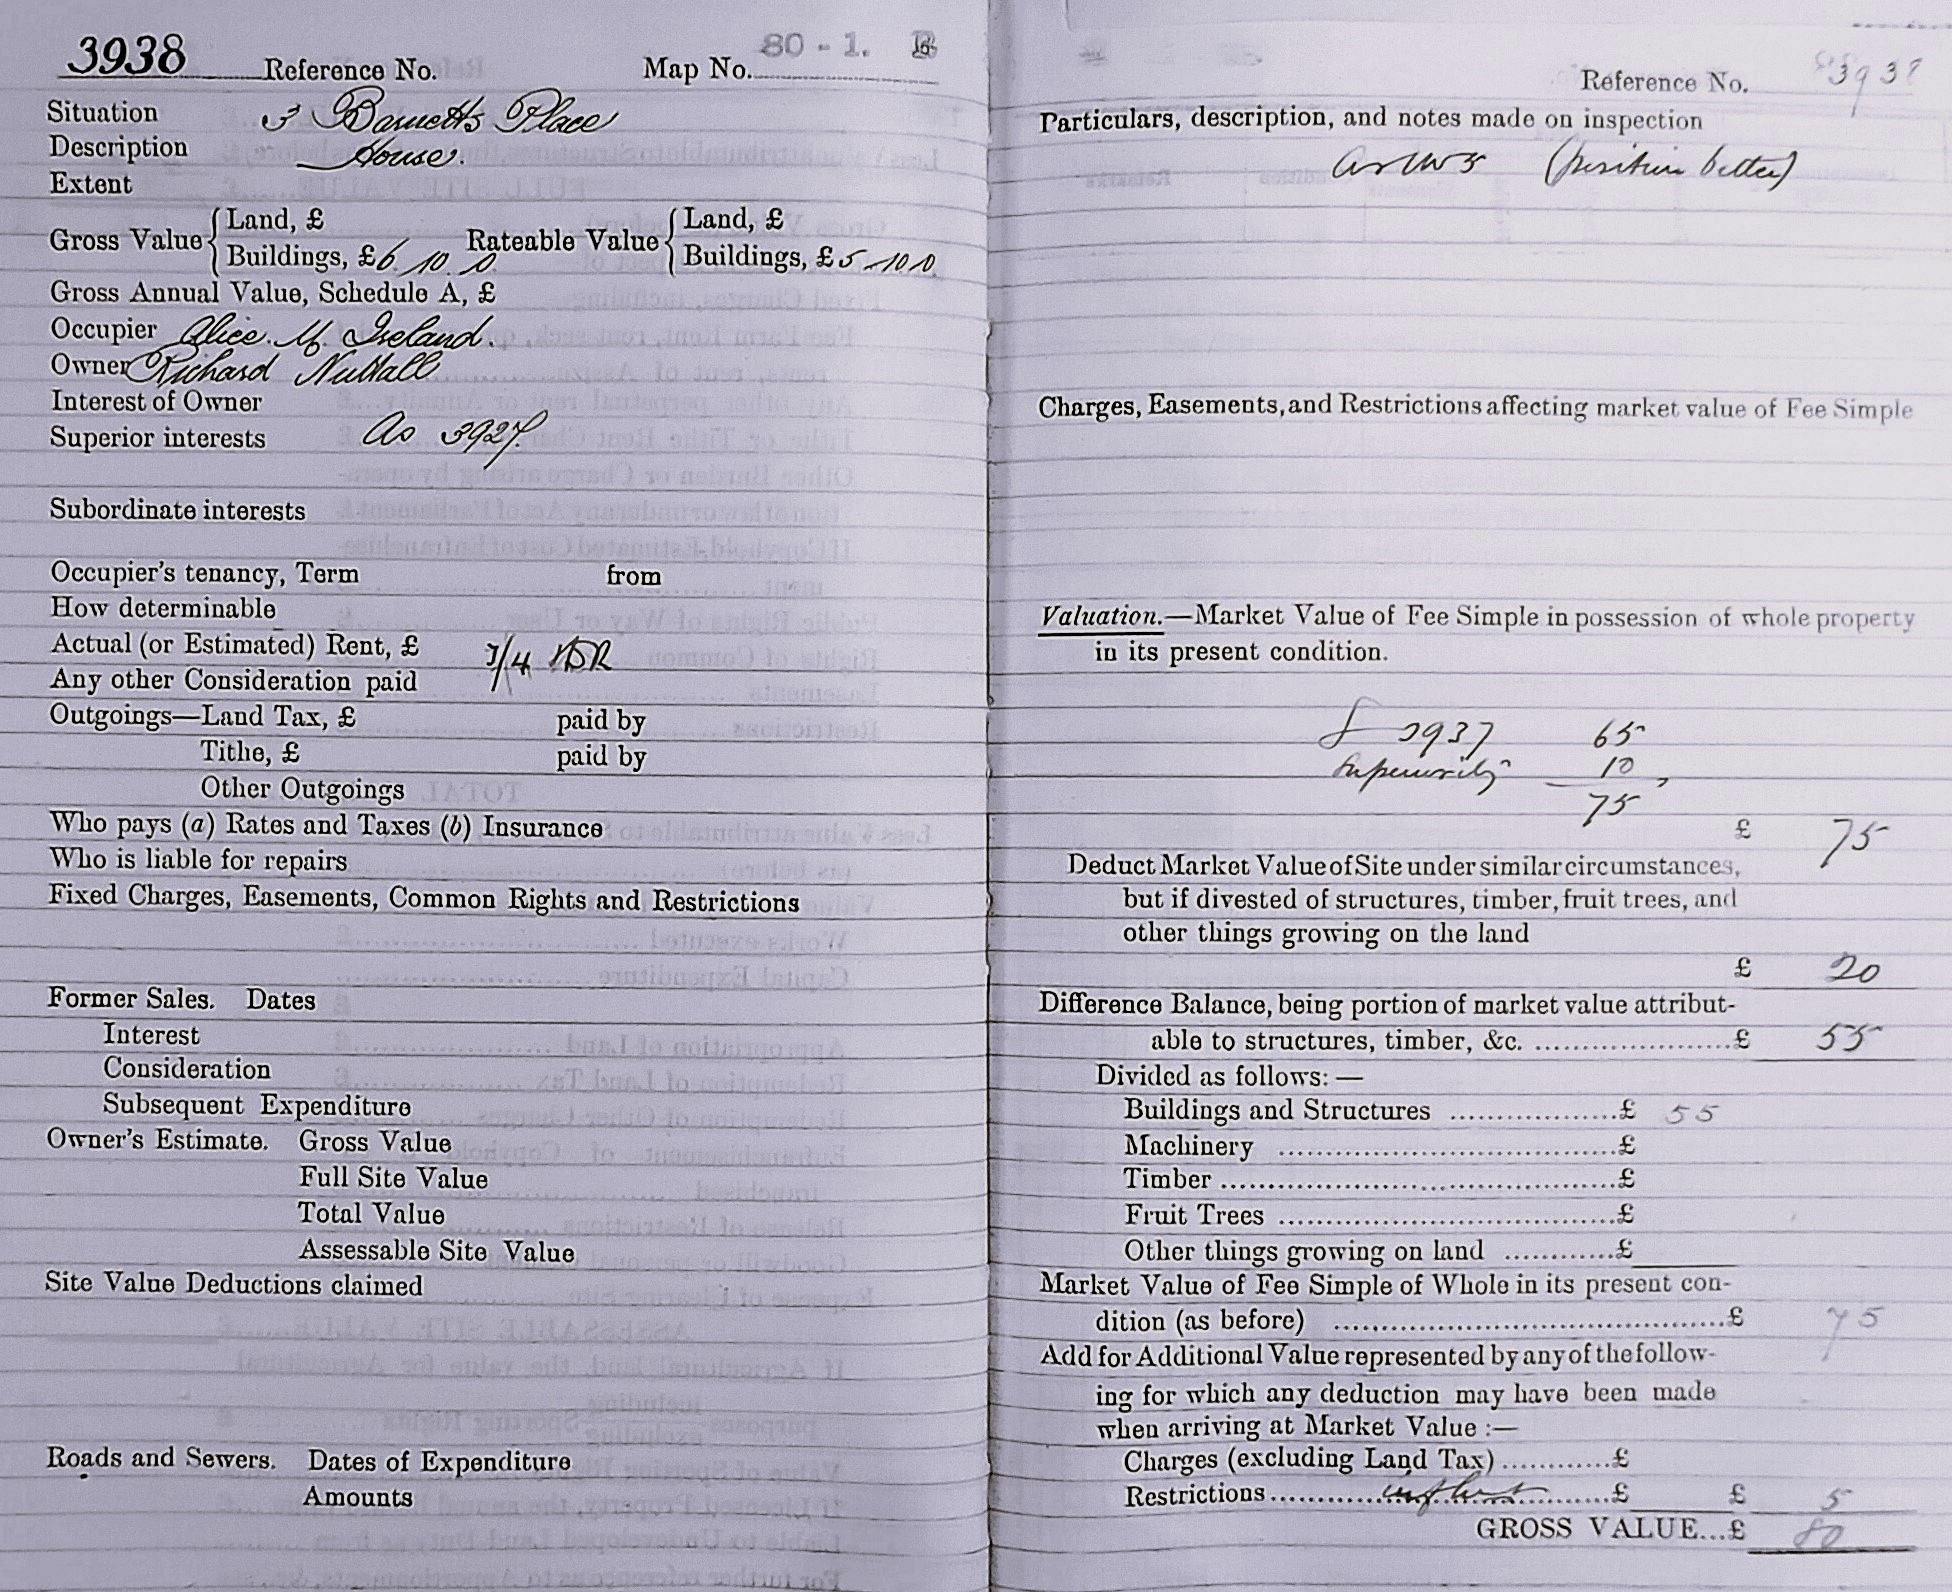 3938 Reference No. Map No. 80 - 1.
Situation 3 Barnetts Place
Description House.
Extent
Gross Value { Land, £ Rateable Value { Land, £
Buildings, £ 6 10 0 Buildings, £ 5 - 10. 0
Gross Annual Value, Schedule A, £
Occupier Alice. M. Ireland.
Owner Richard Nuttall
Interest of Owner
Superior interests As 3927.
Subordinate interests
Occupier's tenancy, Term from
How determinable
Actual (or Estimated) Rent, £
Any other Consideration paid
Outgoings—Land Tax, £ paid by
Tithe, £ paid by
Other Outgoings
Who pays (a) Rates and Taxes (b) Insurance
Who is liable for repairs
Fixed Charges, Easements, Common Rights and Restrictions
Former Sales. Dates
Interest
Consideration
Subsequent Expenditure
Owner's Estimate. Gross Value
Full Site Value
Total Value
Assessable Site Value
Site Value Deductions claimed
Roads and Sewers. Dates of Expenditure
Amounts
Reference No. 3938
Particulars, description, and notes made on inspection
(position better)
Charges, Easements, and Restrictions affecting market value of Fee Simple
Valuation.—Market Value of Fee Simple in possession of whole property
in its present condition.
3937 65
Superiority 10
75
£ 75
Deduct Market Value of Site under similar circumstances,
but if divested of structures, timber, fruit trees, and
other things growing on the land
£ 20
Difference Balance, being portion of market value attribut-
able to structures, timber, &c. ..................... £ 55
Divided as follows: —
Buildings and Structures ...................£ 55
Machinery .....................................£
Timber ...........................................£
Fruit Trees .....................................£
Other things growing on land ............£
Market Value of Fee Simple of Whole in its present con-
dition (as before) ..........................................£ 75
Add for Additional Value represented by any of the follow-
ing for which any deduction may have been made
when arriving at Market Value :—
Charges (excluding Land Tax) ............£
Restrictions ....................................£ £ 5
GROSS VALUE...£ 80